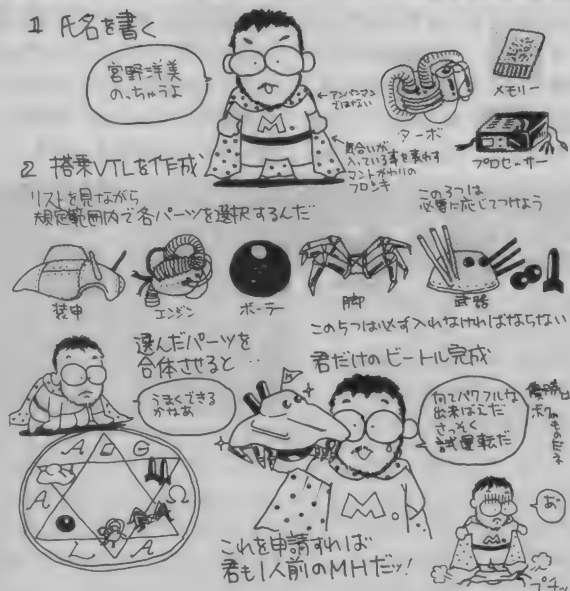 1 氏名を書く
宮野洋美
のっちゃうよ
←アンパンマン
ではない
M
気合いが
入っている事を表わす
マントがわりの
フロシキ
ターボ
メモリー
プロセーサー
この3つは
必要に応じてつけよう
2 搭乗VTLを作成
リストを見ながら
規定範囲内で各パーツを選択するんだ
装甲
エンジン
ボーラー
脚
武器
この5つは必ず入れなければならない
選んだパーツを
合体させると‥
うまくできる
かなぁ
君だけのビートル完成
何てパワフルな
出来ばえだ
さっそく
試運転だ
優勝は
ボクの
ものだネ
M
これを申請すれば
君も1人前のMHだッ!
あ
プチッ